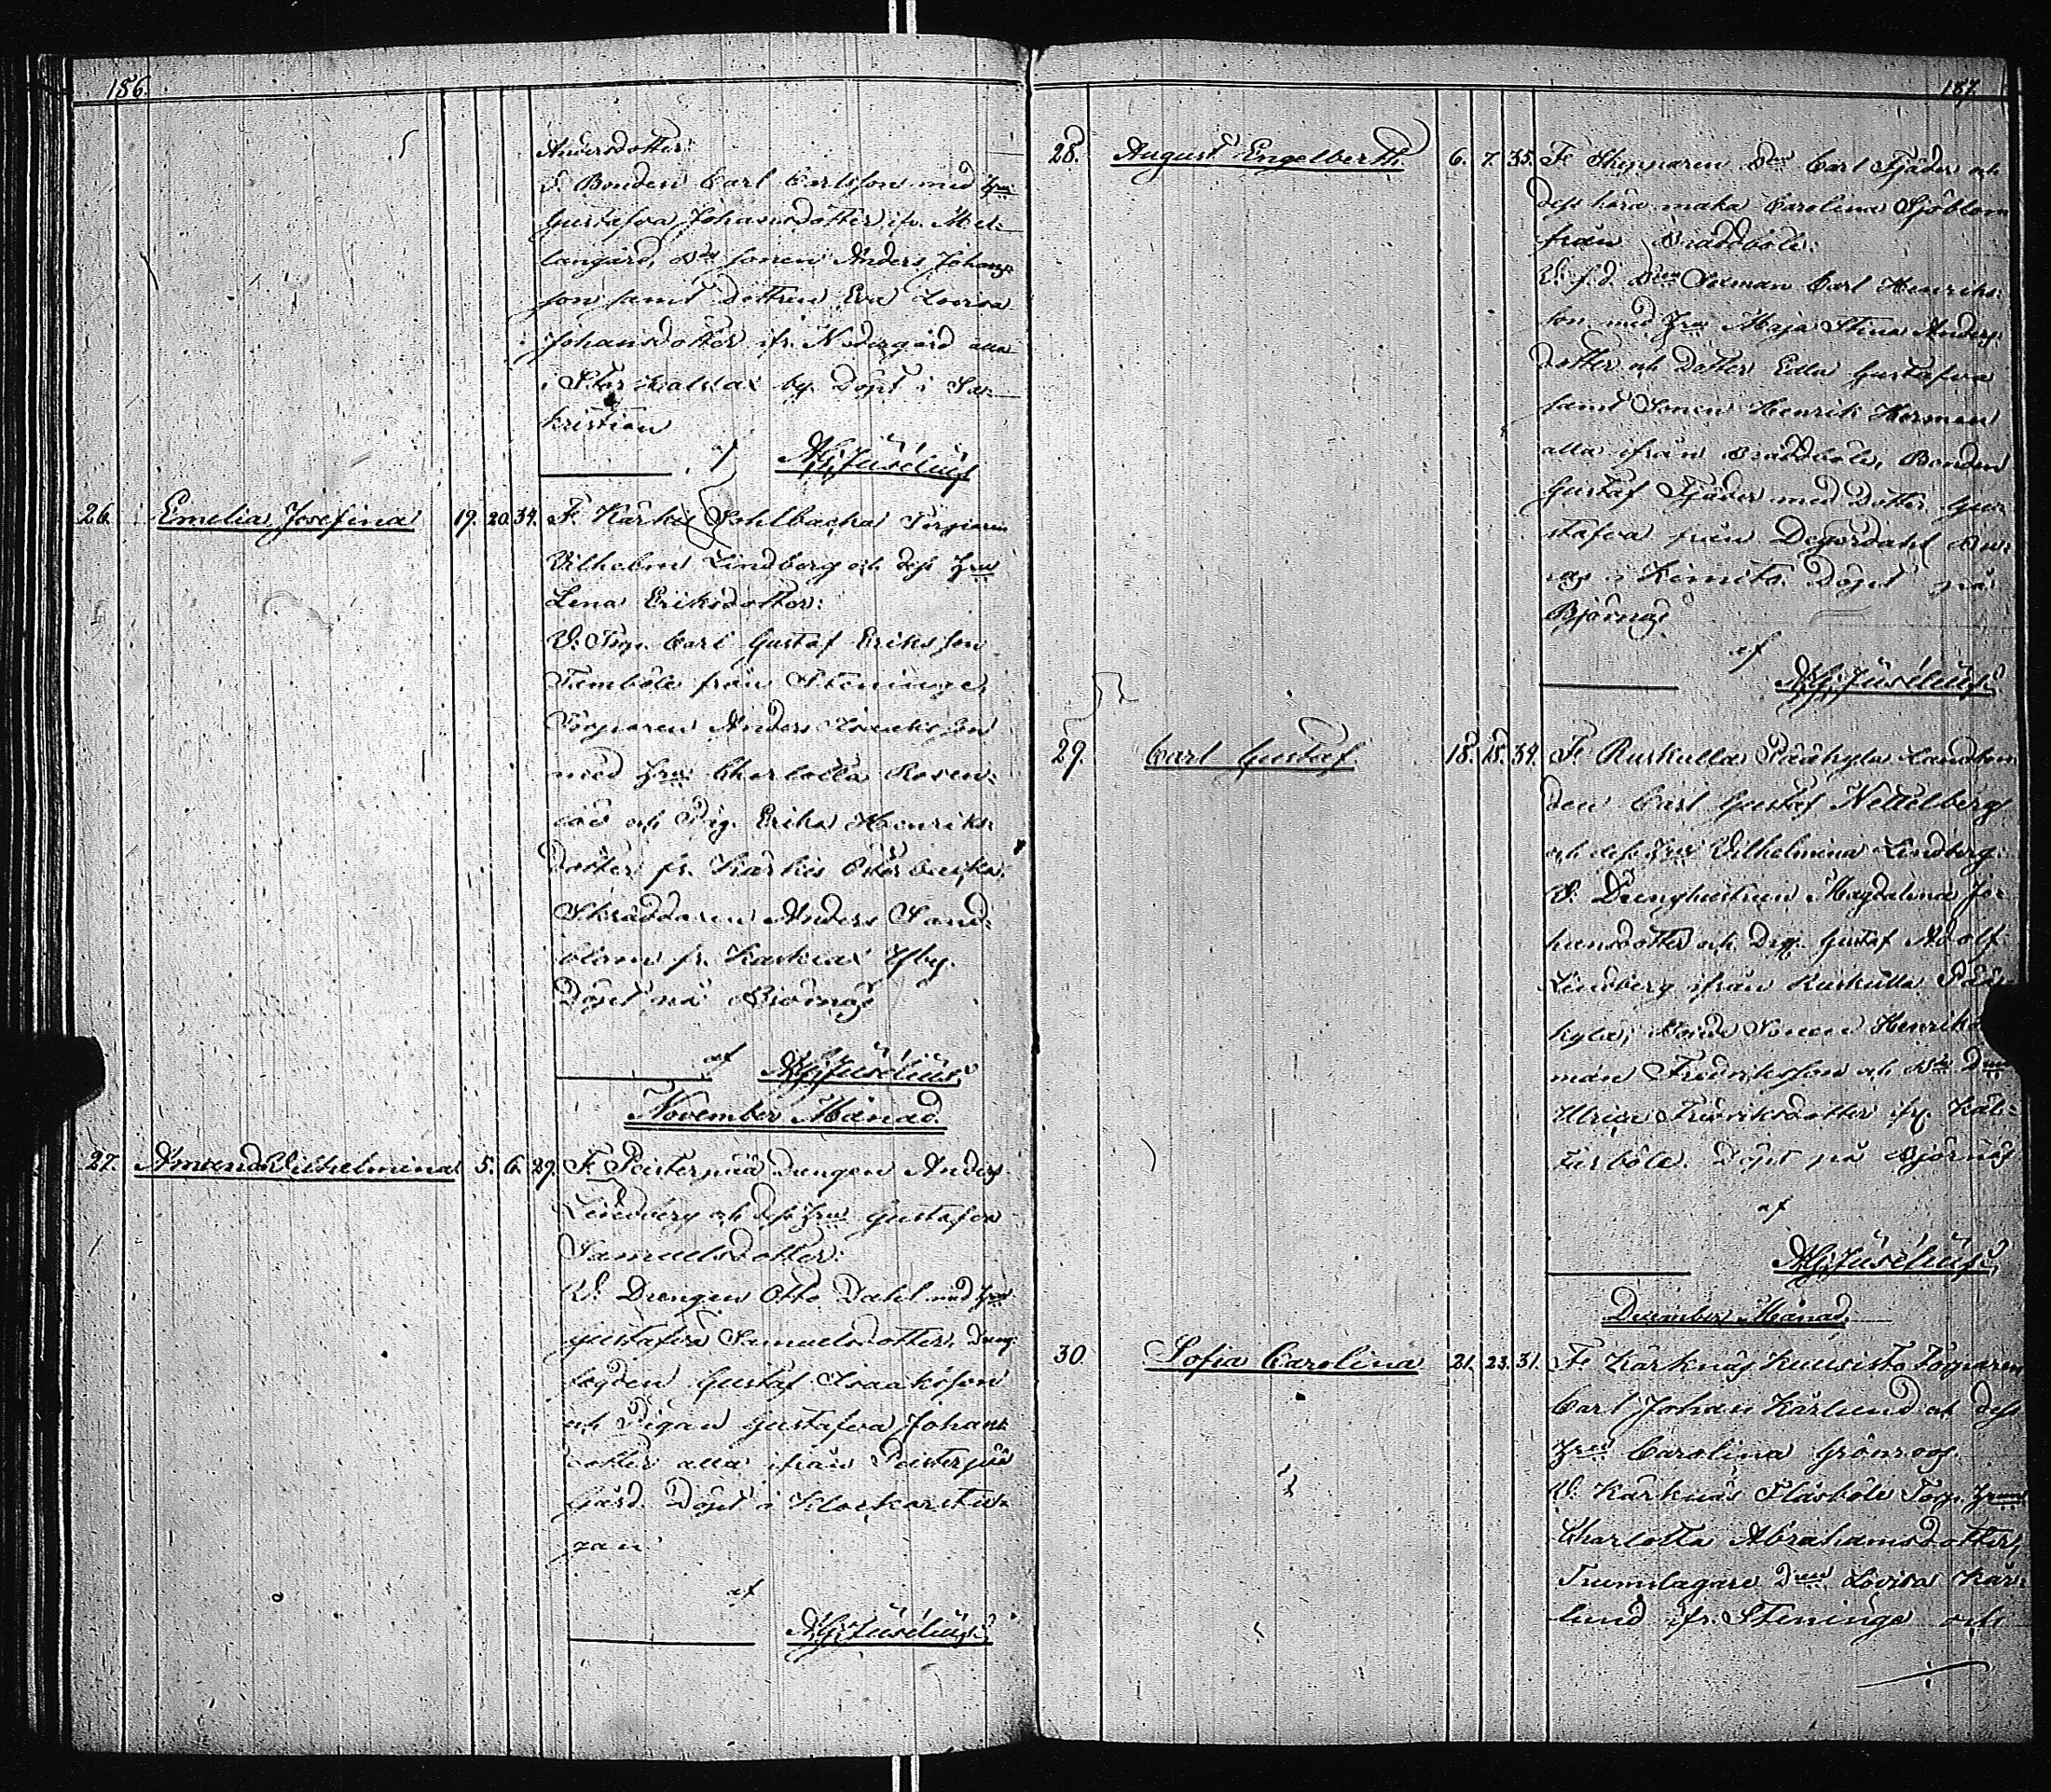 186.
Andersdotter:
V. Bonden Carl Carlsson med Hru
Gustafva Johansdotter ifr. Mel-
langård, Bde sonen Anders Johans-
son samt Dottren Eva Lovisa
Johansdotter ifr. Nedergård alla
i Storkalslax by. Döpt i Sa-
kristian
af AGJusélius
26. Emelia Josefina 19. 20. 34. F. Karkis Torparen
Vilhelm Lindberg och dess Hru
Lena Eriksdotter:
V. Torp. Carl Gustaf Eriksson
från Steninge,
Torparen Anders Isaksson
med Hru Charlotta Rosen-
löv och Pig. Erika Henriks-
dotter fr. Karkis
Skräddaren Anders Sand-
blom fr.
Döpt på Björnäs
af AGJusélius
November Månad.
27. Amanda Vilhelmina 5. 6. 29. F. Peisterpää drengen Anders
Lindberg och dess Hru Gustafva
Samuelsdotter:
V. Drengen Otto Dahl med Hru
Gustafva Samuelsdotter, Dreng
Gustaf Isaaksson
och Pigan Gustafva Johans-
dotter alla ifrån Peisterpää
gård. Döpt i Klockarestu-
gan
af
AGJusélius
187.
28. August Engelberth. 6. 7. 35. F. Skepparen Bde Carl Fjäder och
dess kära maka Carolina Sjöblom
från Braddbole:
V. f.d. Bde Sexman Carl Henriks-
son med Hru Maja Stina Anders-
dotter och Dotter Edla Gustafva
samt Sonen Henrik Herman
alla ifrån Braddbole, Bonden
Gustaf Fjäder med Dotter Gu-
stafva från Degerdahl
i Kimito. Döpt på
Björnäs
af
AGJusélius
29. Carl Gustaf 18. 18. 34. F. Ruskulla Pääkylä Landbon-
den Carl Gustaf Nettelberg
och dess Hru Vilhelmina Lindberg:
V. Drenghustrun Magdalena Jo-
hansdotter och Drg. Gustaf Adolf
Lindberg ifrån Ruskulla Pää-
kylä, Bonde Sonen Henrik
man Fredriksson och Bde
Fredriksdotter ifr. Käl-
Döpt på Björnäs
af
AGJusélius
December Månad.
30. Sofia Carolina 21. 23. 31. F. Kärknäs Kuusisto Torparen
Carl Johan Kärlund och dess
Hru Carolina Grönroos.
V. Kärknäs Fläsböle Torp. Hrun
Charlotta Abrahamsdotter,
Lovisa Kär-
lund ifr. Steninge och